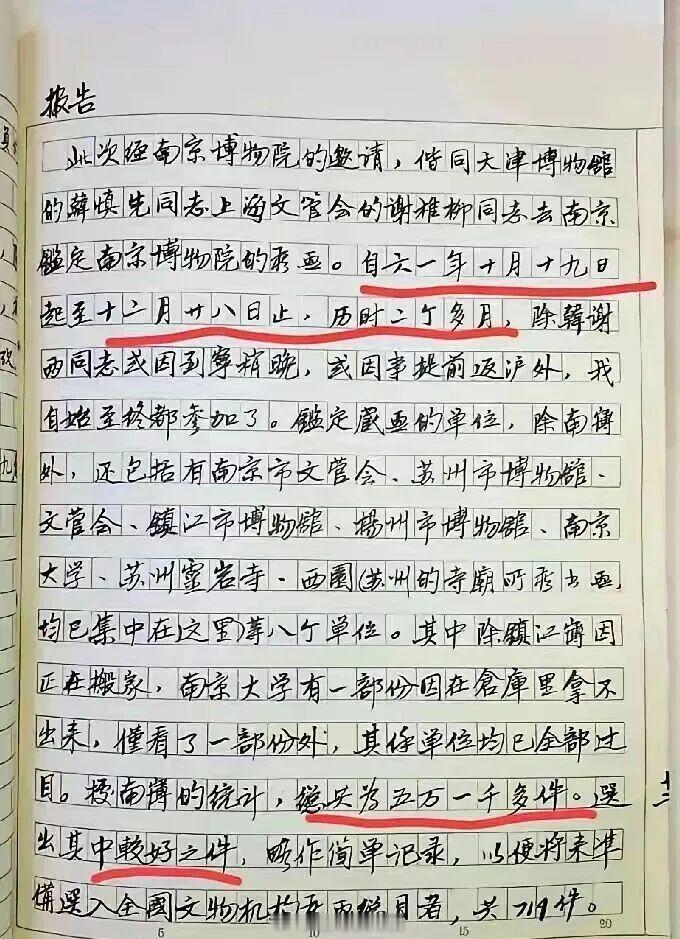 报告
此次经南京博物院的邀请，偕同天津博物館
的韓慎先同志上海文管会的谢稚柳同志去南京
鑑定南京博物院的藏画。自六一年十月十九日
起至十二月廿八日止，历时二个多月，除韓谢
两同志或因到寧稍晚，或因事提前返沪外，我
自始至终都参加了。鑑定藏画的单位，除南博
外，还包括有南京市文管会、苏州市博物館、
文管会、鎮江市博物館、揚州市博物館、南京
大学、苏州靈岩寺、西園(苏州的寺廟所藏书画，
均已集中在这里)等八个单位。其中除鎮江博因
正在搬家，南京大学有一部份因在倉庫里拿不
出来，僅看了一部份外，其他单位均已全部过
目。据南博的统计，總共为五万一千多件。選
出其中較好之件，略作简单记录，以便将来準
備選入全國文物机 目者，共719件。
5 10 15 20